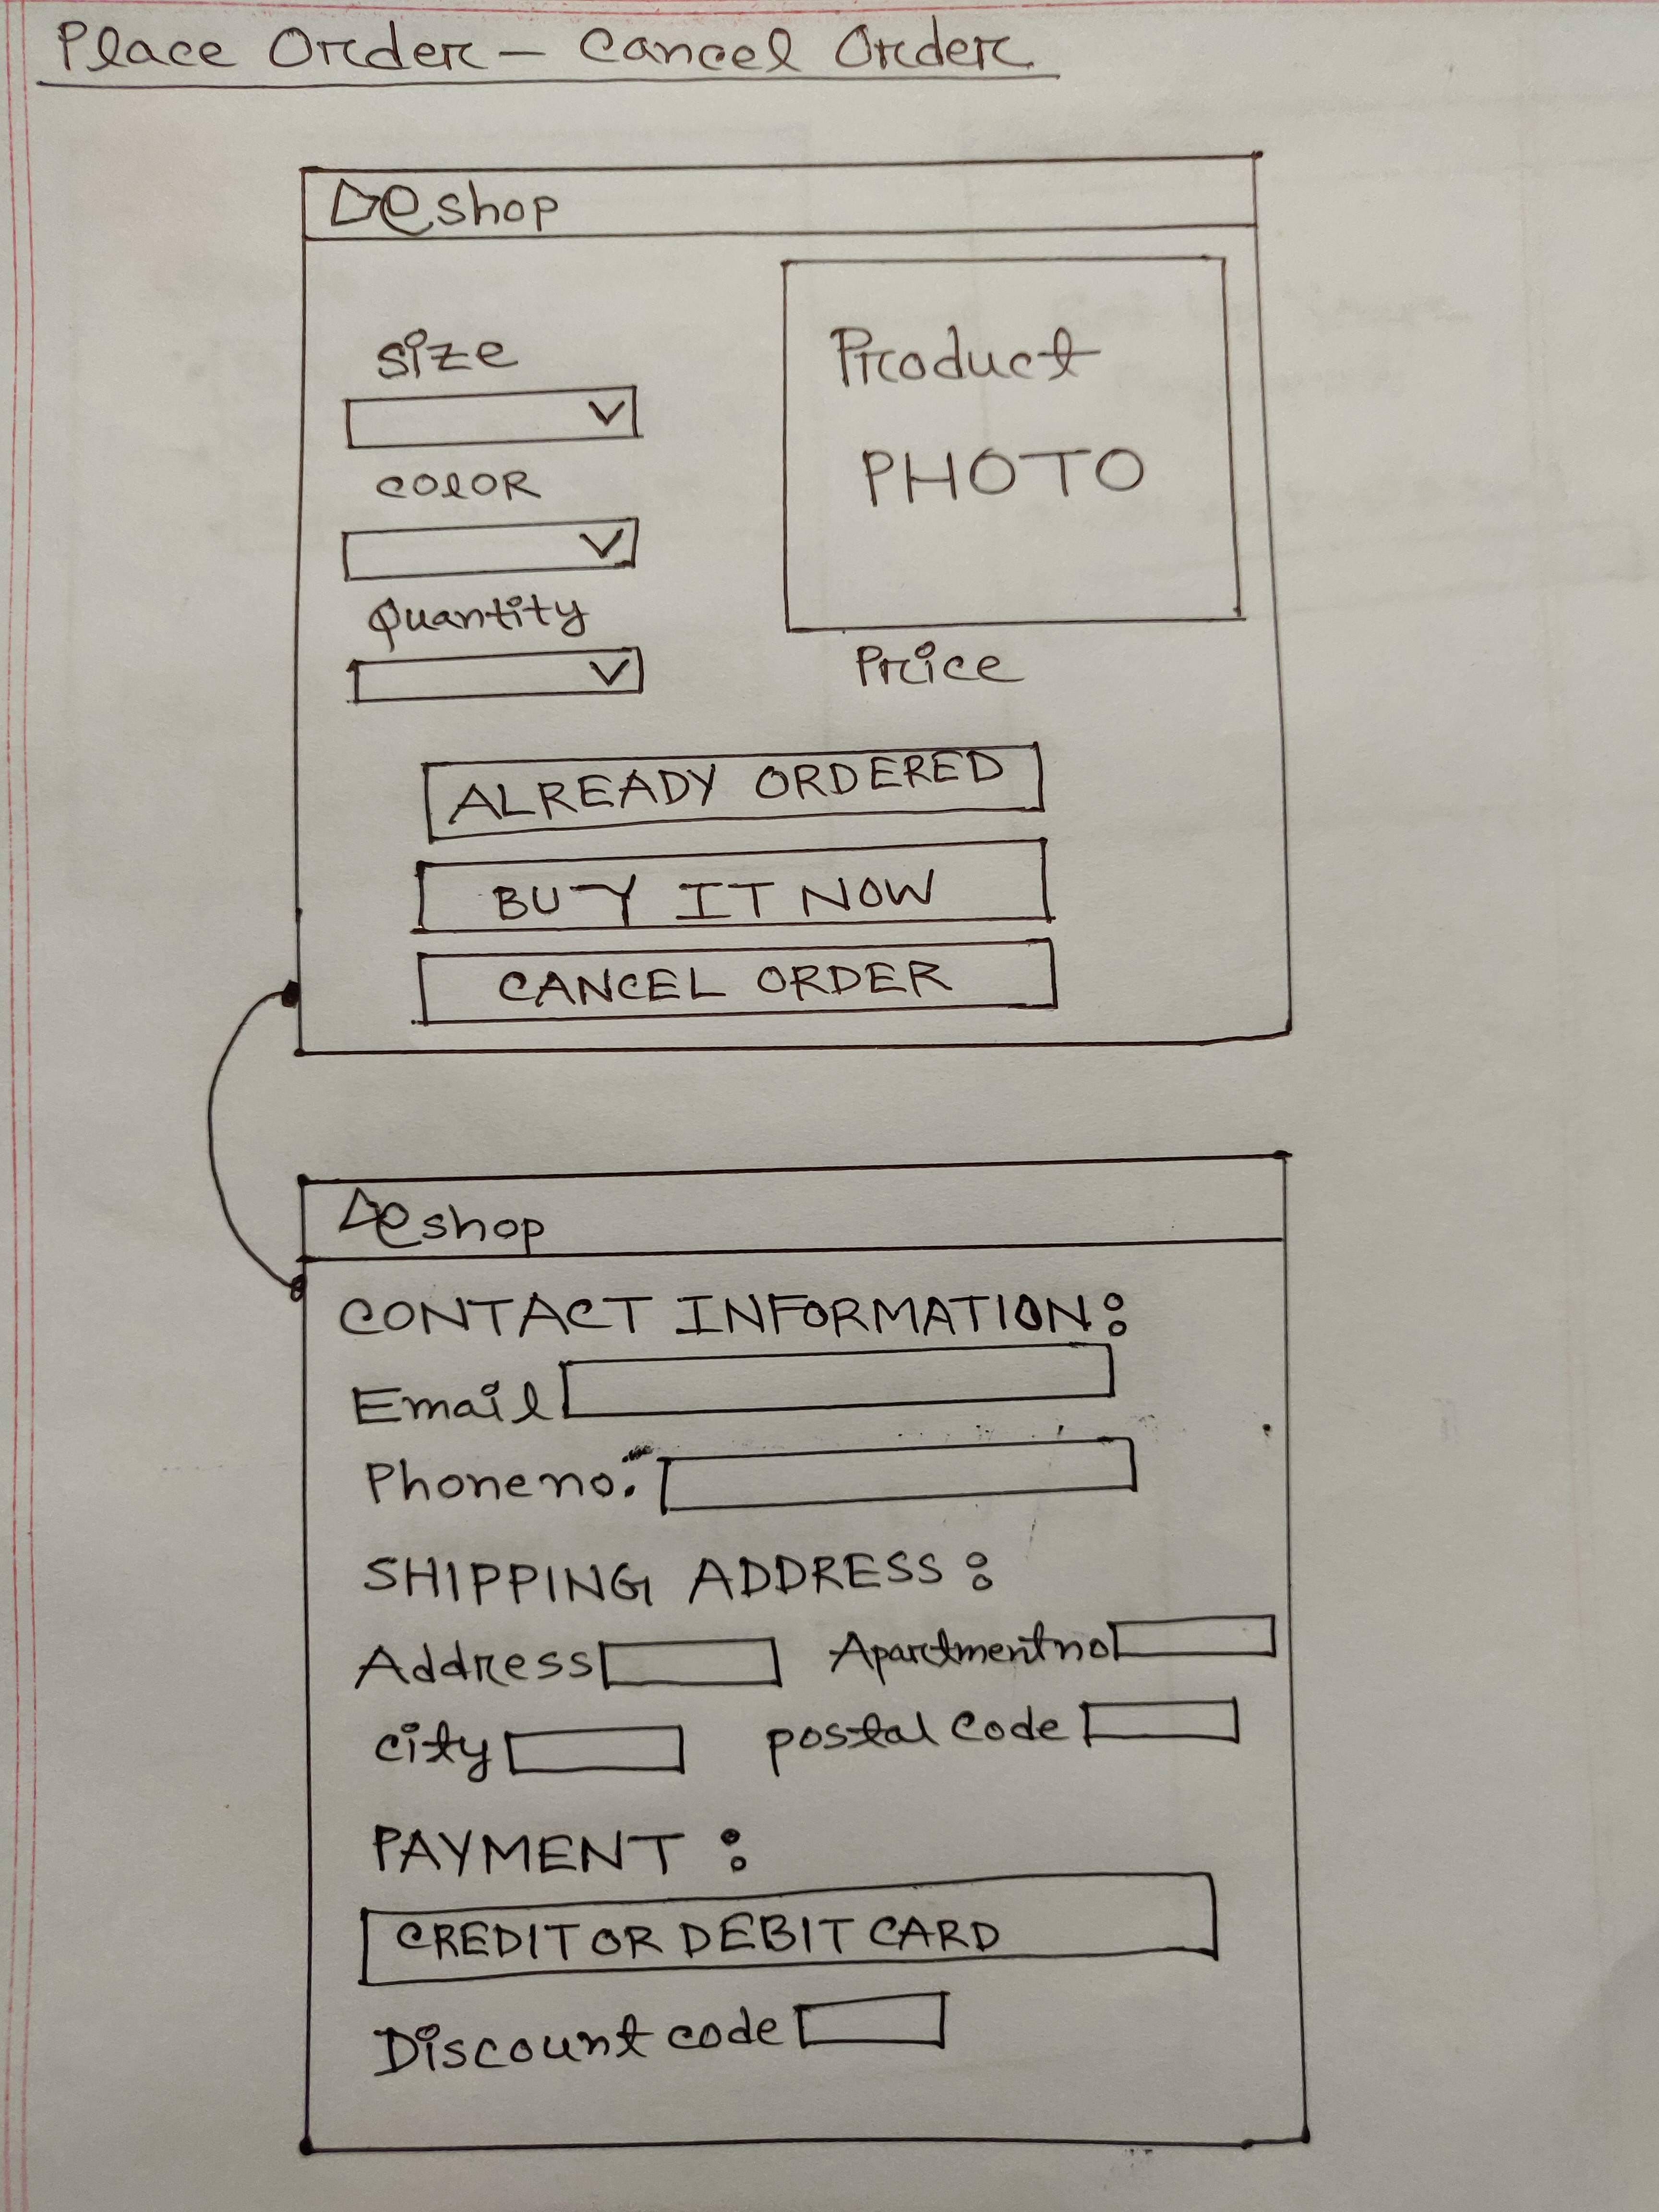 Place Order - Cancel Order
eshop
Size
Product
PHOTO
COLOR
Quantity
Price
ALREADY ORDERED
BUY IT NOW
CANCEL ORDER
eshop
CONTACT INFORMATION:
Email
Phone no.
SHIPPING ADDRESS:
Address Apartment no
City postal Code
PAYMENT:
CREDIT OR DEBIT CARD
Discount code